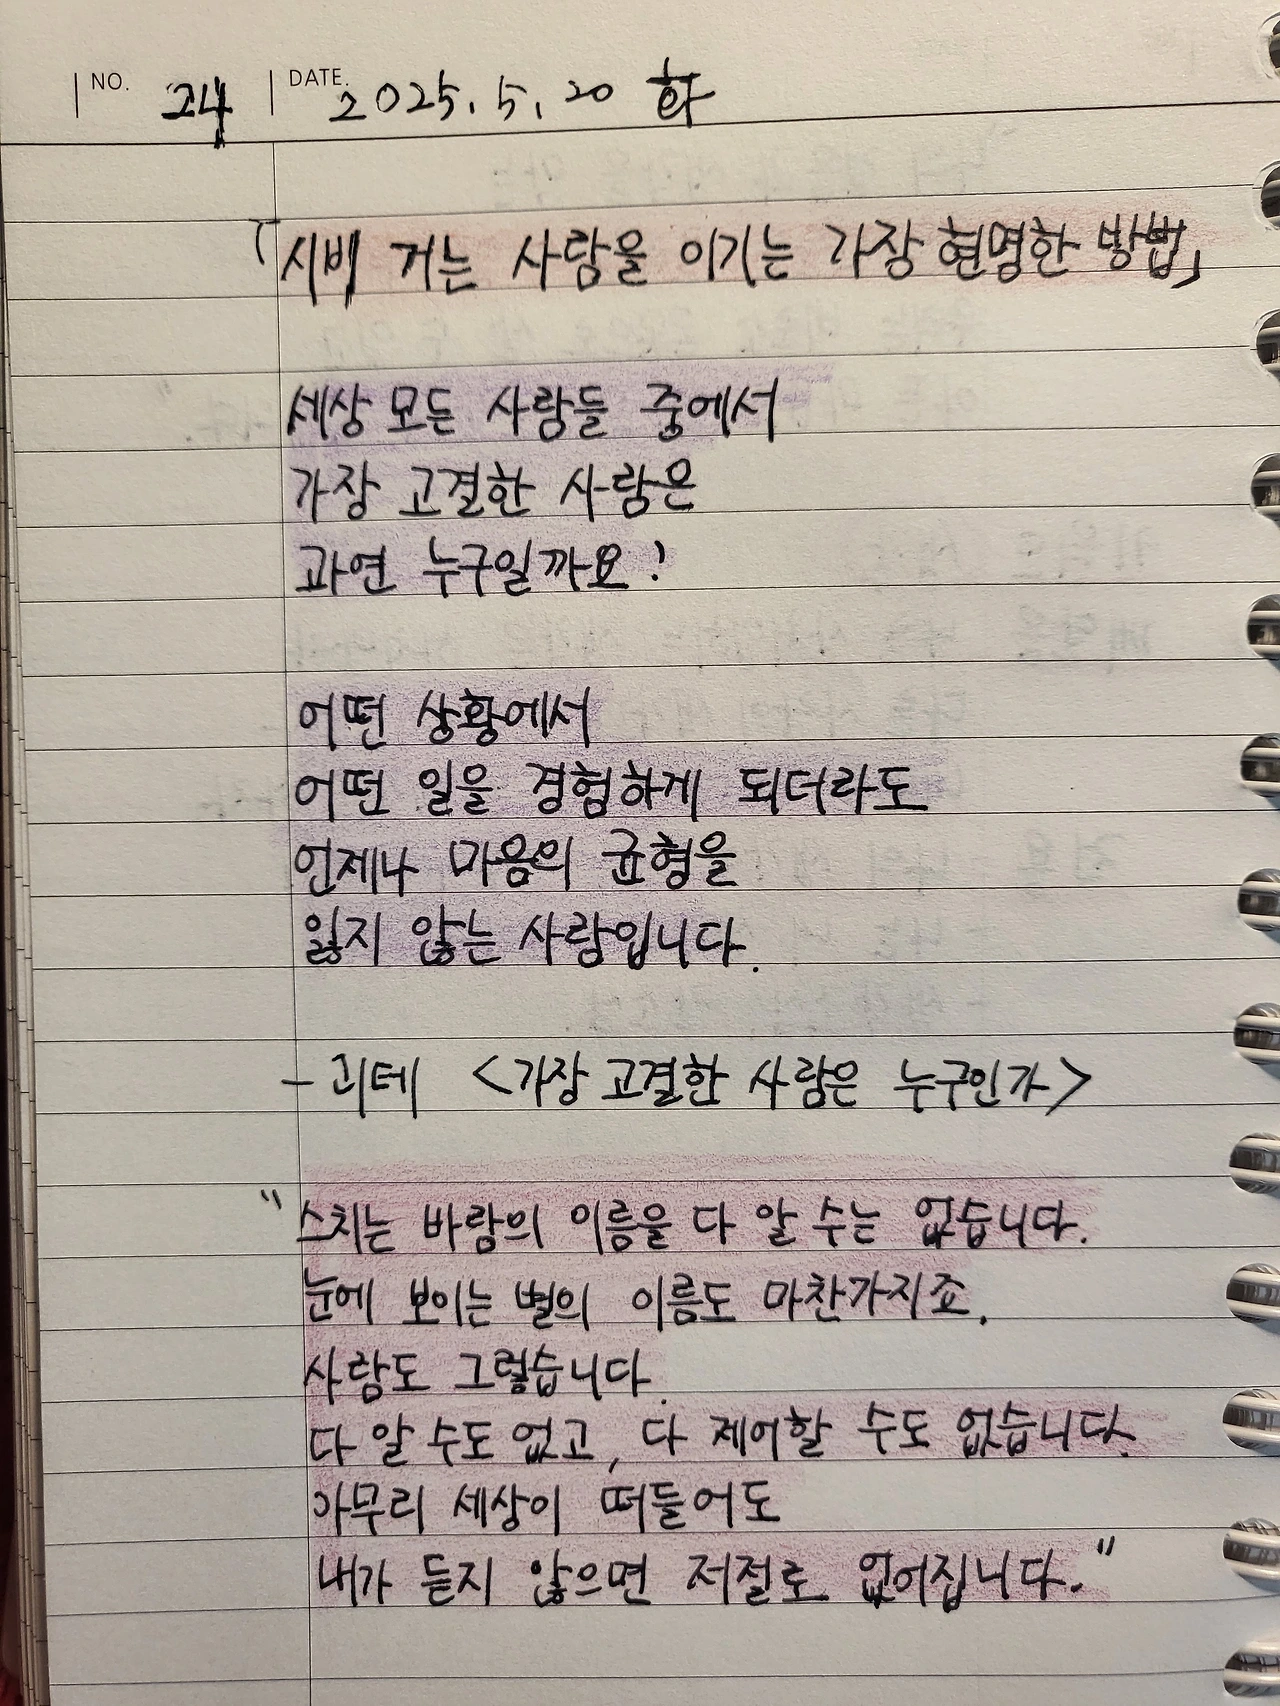 NO. 24 DATE. 2025. 5. 20 화
「시비 거는 사람을 이기는 가장 현명한 방법」
세상 모든 사람들 중에서
가장 고결한 사람은
과연 누구일까요?
어떤 상황에서
어떤 일을 경험하게 되더라도
언제나 마음의 균형을
잃지 않는 사람입니다.
- 괴테 <가장 고결한 사람은 누구인가>
"스치는 바람의 이름을 다 알 수는 없습니다.
눈에 보이는 별의 이름도 마찬가지죠.
사람도 그렇습니다.
다 알 수도 없고, 다 제어할 수도 없습니다.
아무리 세상이 떠들어도
내가 듣지 않으면 저절로 없어집니다."